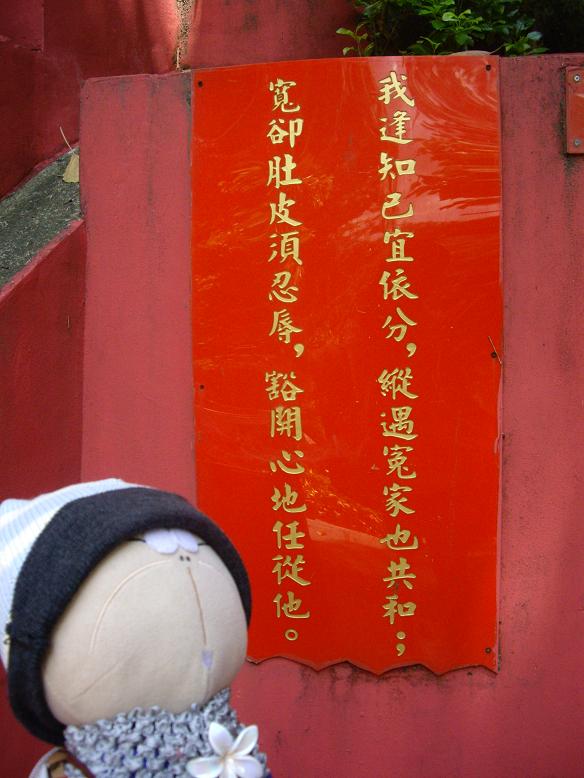 我逢知已宜依分，縱遇冤家也共和；
寬卻肚皮須忍辱，豁開心地任從他。